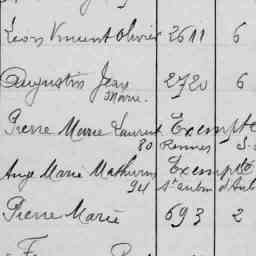 Léon Vincent Olivier 2611 6
Augustin Jean 2720 6
Marie.
Pierre Marie Laurent Exempté
80 Rennes S.
Ange Marie Mathurin Exempté
94 St Aubin d'Aub
Pierre Marie 693 2